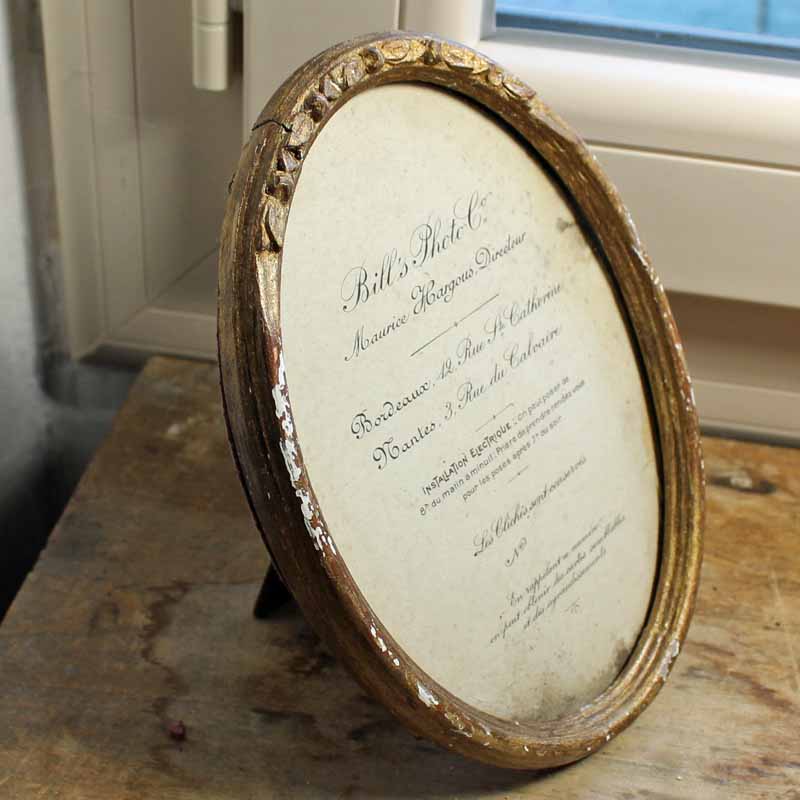 Bill's Photo Co
Maurice Hargous, Directeur
Bordeaux, 12, Rue Ste Catherine
Nantes, 3, Rue du Calvaire
INSTALLATION ELECTRIQUE. On peut poser de
8h du matin à minuit. Prière de prendre rendez-vous
pour les poses après 7h du soir
Les Clichés sont conservés
No
En rappelant ce numéro
on peut obtenir des cartes semblables
et des agrandissements